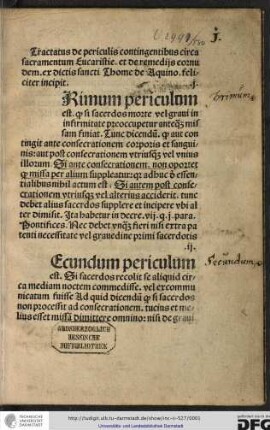 j.
Tractatus de periculis contingentibus circa
sacramentum Eucaristie. et de remedijs eorun
dem. ex dictis sancti Thome de Aquino. feli
citer incipit. .j.
Rimum periculum
est. ꝙ si sacerdos morte vel graui in
infirmitate preoccupetur anteqͣꝫ mis
sam finiat. Tunc dicendū. ꝙ aut con
tingit ante consecrationem corporis et sangui
nis: aut post consecrationem vtriusqꝫ vel vnius
illorum. Si ante consecrationem. non oportet
ꝙ missa per alium suppleatur: qꝛ adhuc ð essen
tialibus nihil actum est. Si autem post conse
crationem vtriusqꝫ vel alterius acciderit. tunc
debet alius sacerdos supplere et incipere vbi al
ter dimisit. Ita habetur in decre. vij. q. j. para.
Pontifices. Nec debet vnqͣꝫ fieri nisi extra pa
tenti necessitate vel grauedine primi sacerdotis
.ij.
Ecundum periculum
est. Si sacerdos recolit se aliquid cir
ca mediam noctem commedisse. vel excommu
nicatum fuisse Ad quid dicendū ꝙ si sacerdos
non processit ad consecrationem. tucius et me
lius esset missā dimittere omnino: nisi de graui
primum
Secundum
GROSHERZOGLICH
HESSISCHE
HOFBIBLIOTHEK
TECHNISCHE
UNIVERSITÄT
DARMSTADT
http://tudigit.ulb.tu-darmstadt.de/show/inc-ii-527/0001
Universitäts- und Landesbibliothek Darmstadt
gefördert durch die
DFG